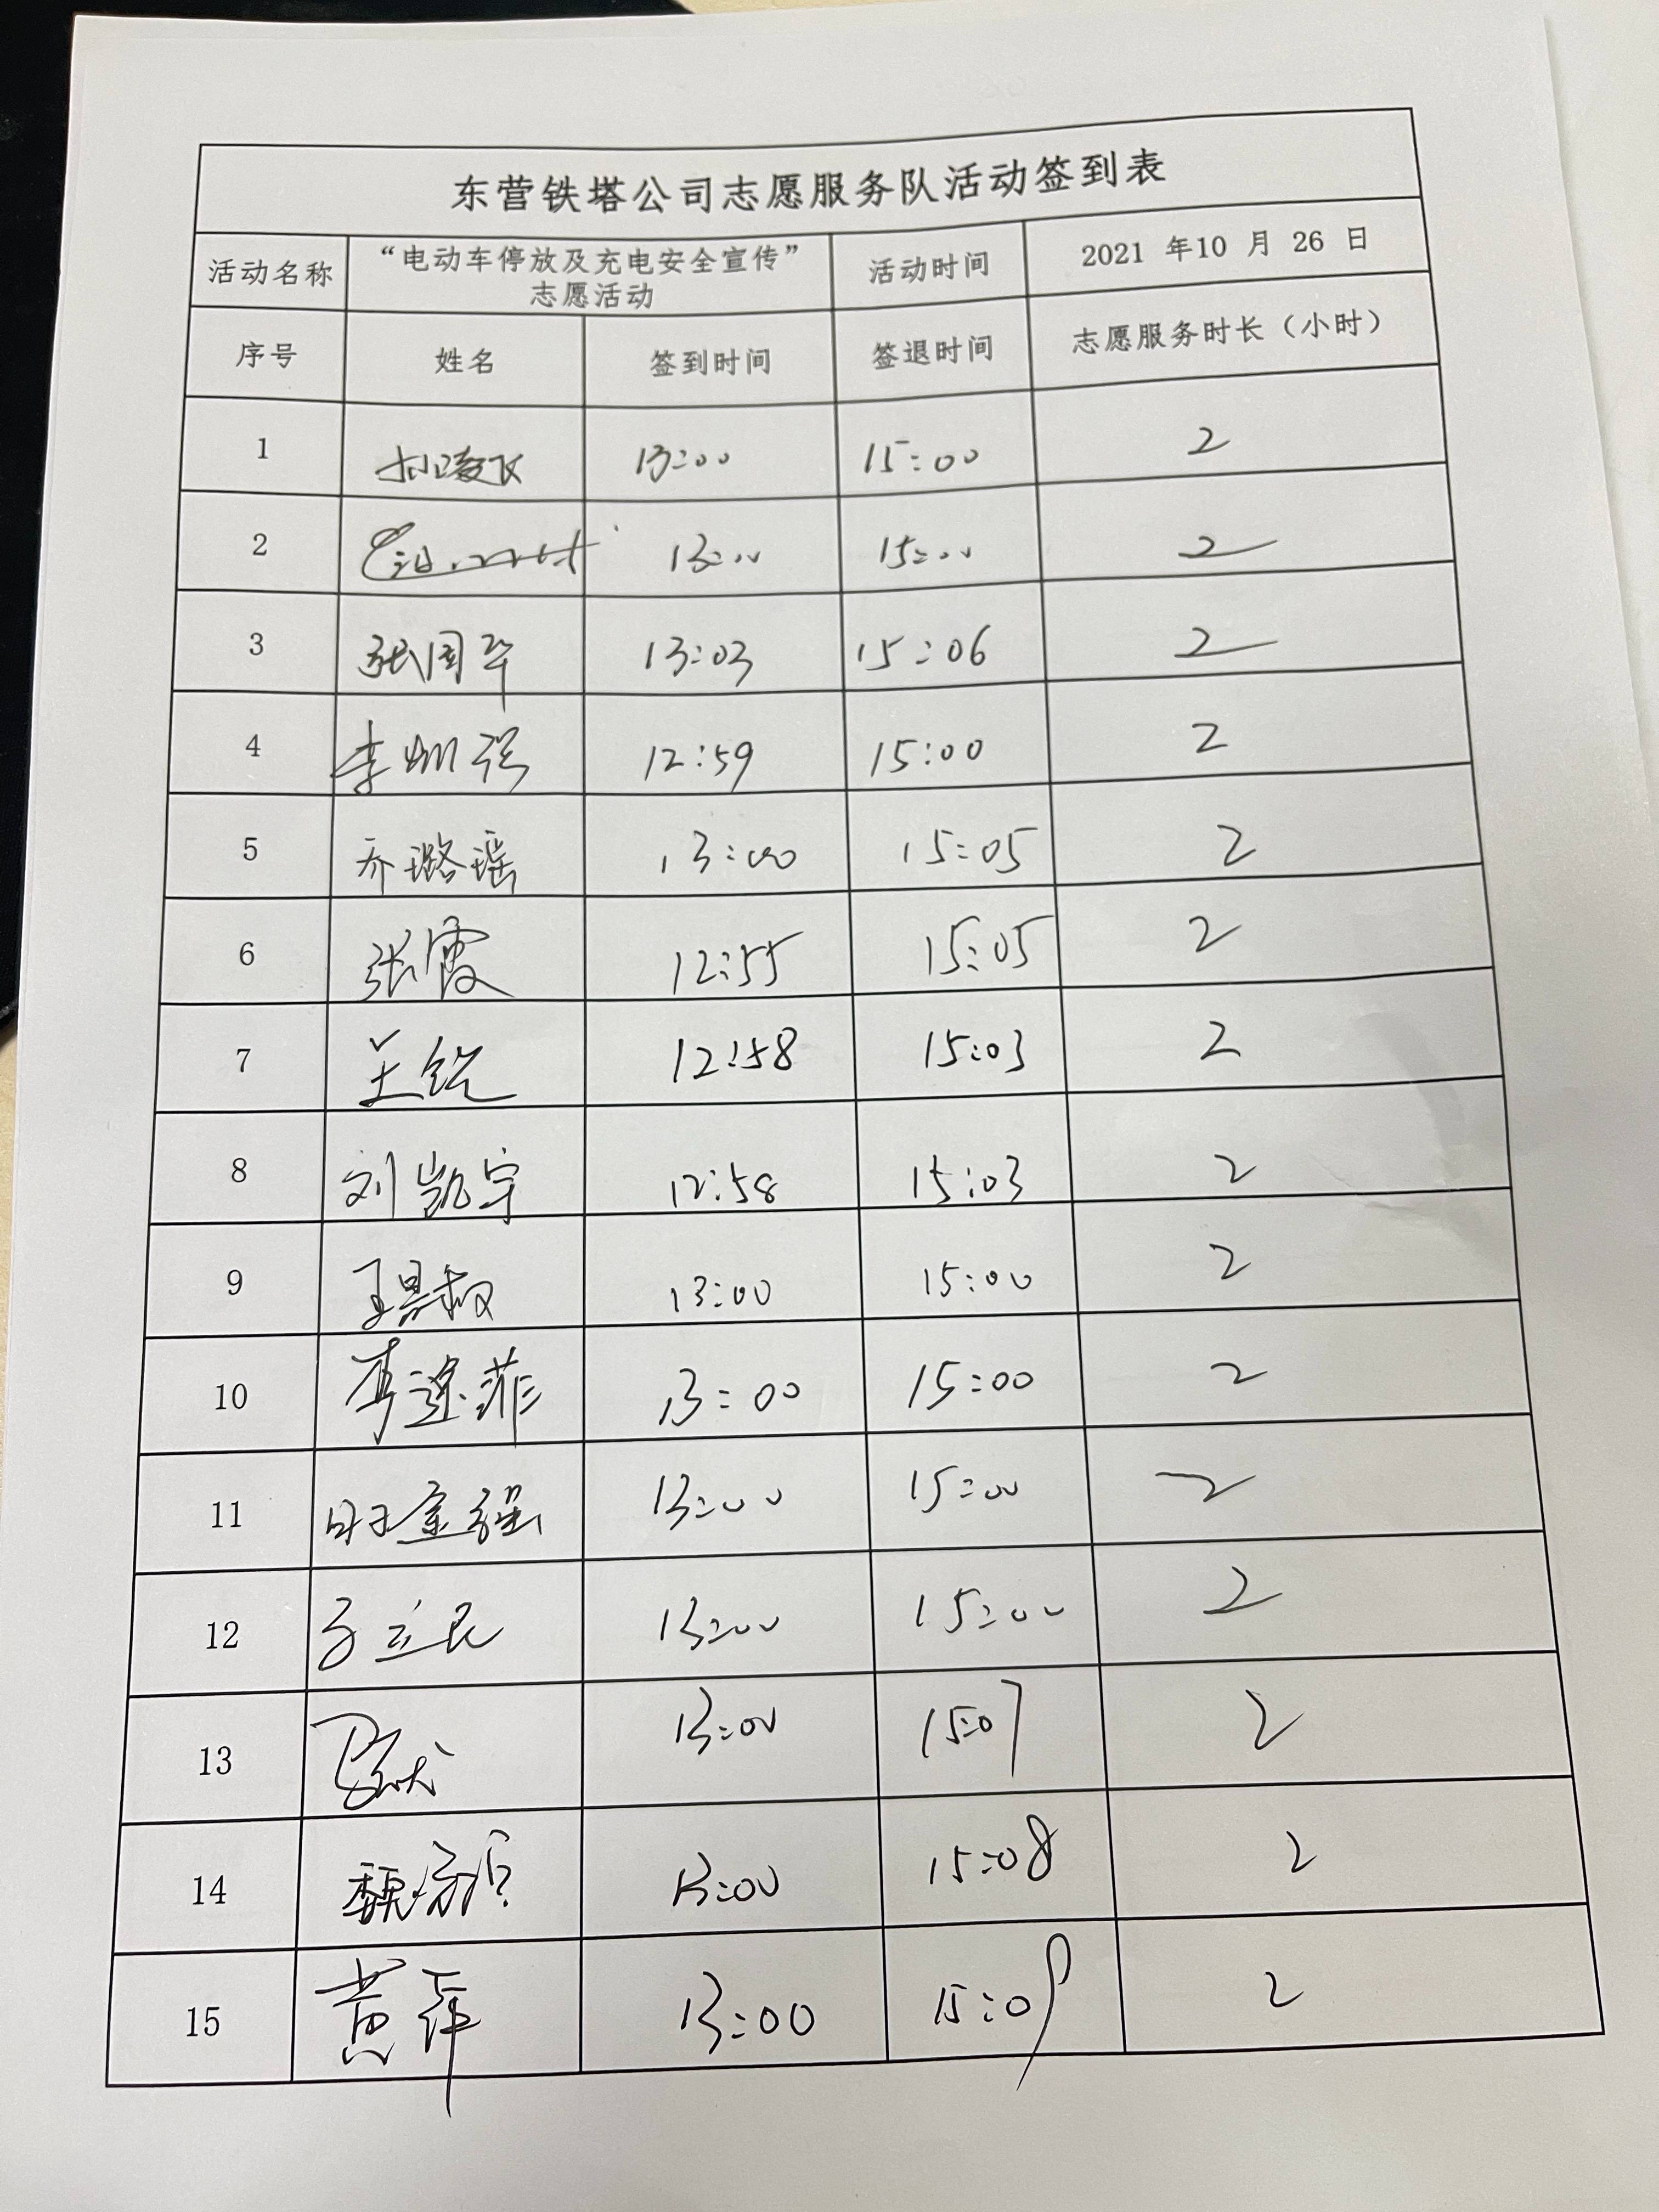 东营铁塔公司志愿服务队活动签到表
活动名称 “电动车停放及充电安全宣传” 志愿活动 活动时间 2021 年10 月 26 日
序号 姓名 签到时间 签退时间 志愿服务时长（小时）
1 13:00 15:00 2
2 13:00 15:00 2
3 张国华 13:03 15:06 2
4 李 强 12:59 15:00 2
5 乔璐瑶 13:00 15:05 2
6 张霞 12:55 15:05 2
7 王锐 12:58 15:03 2
8 刘凯宇 12:58 15:03 2
9 王 13:00 15:00 2
10 李 菲 13:00 15:00 2
11 强 13:00 15:00 2
12 立民 13:00 15:00 2
13 13:00 15:07 2
14 魏 13:00 15:08 2
15 黄萍 13:00 15:09 2